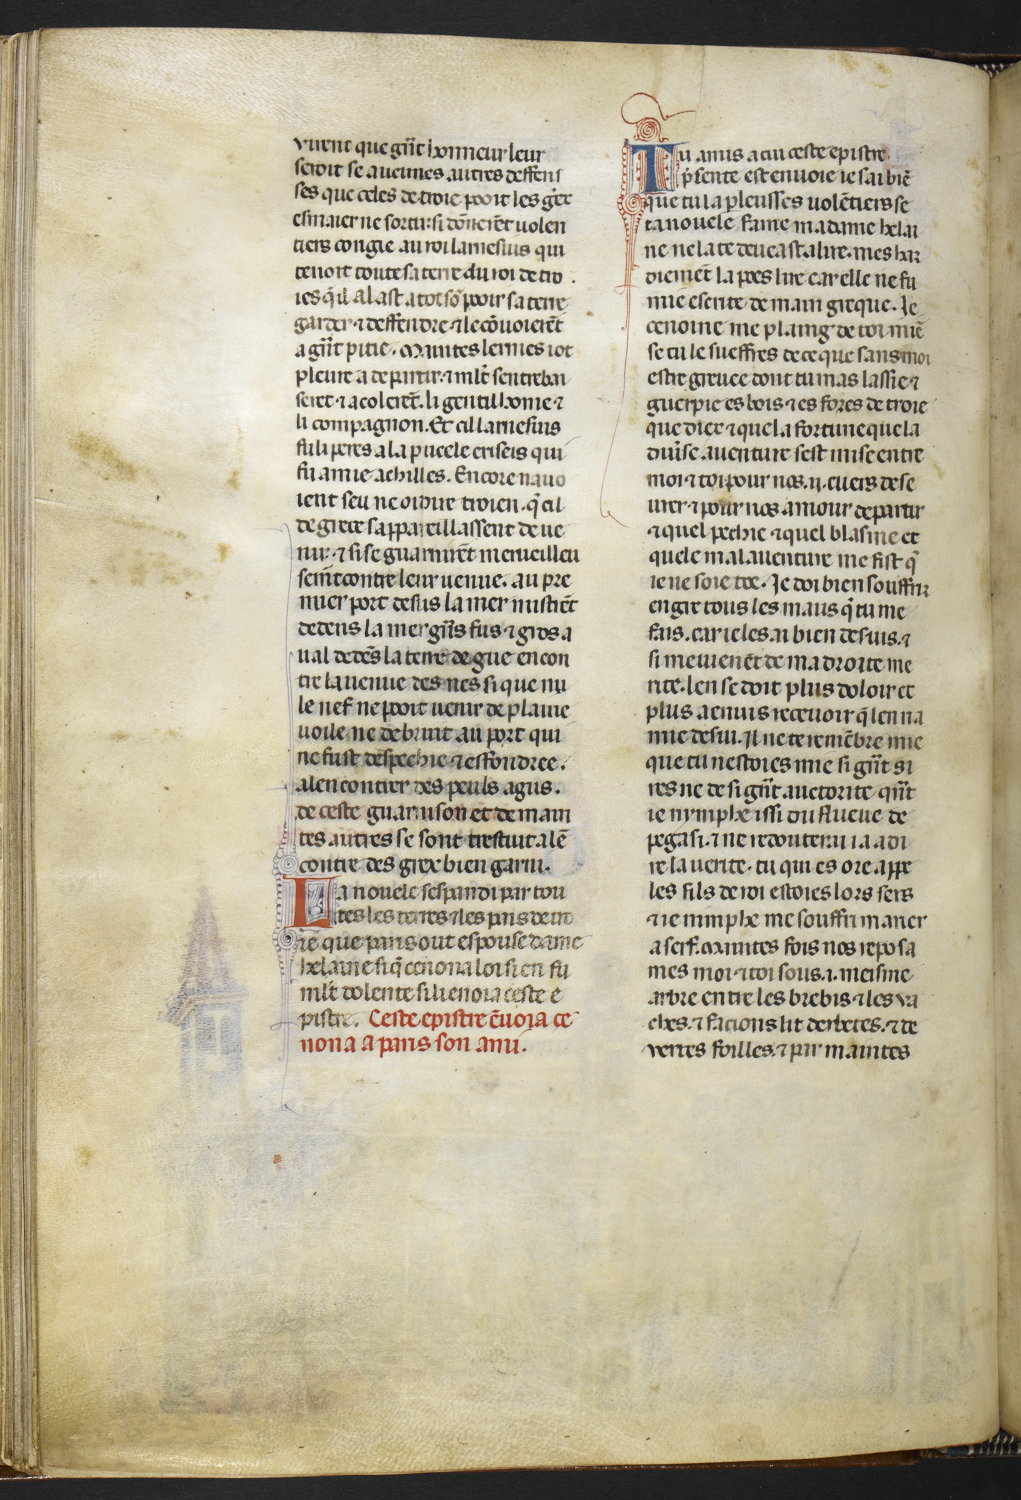 virent que grãt honneur leur
seroit se aucunes autres deffens
ses que celes de troie pooit les grex
esmaier ne sortir. si dõnerẽt uolen
tiers congie au roi lamesius qui
tenoit toute sa terre du roi de tro
ies q̃ il alast a tot sõ pooir sa terre
garder ⁊ deffendre. ⁊ le cõuoierẽt
a grãt pitie. Maintes lermes iot
pleure a departir. ⁊ mlt̃ sentrebai
sierẽt ⁊ acolerẽt. li gentill home ⁊
li compagnon. Et cil lamesius
fu li peres a la pucele criseis qui
fu amie achilles. Encore nauo
ient seu ne oi dire troien. q̃ cil
de grece sappareillassent de ue
nir. ⁊ si se guarnirẽt merueilleu
semẽt contre leur uenue. au pre
mier port desus la mer mistrẽt
dedens la mer grãs fus ⁊ gros a
ual dedẽs la terre de gue encon
tre la uenue des nes si que nu
le nef ne pooit uenir de plaine
uoile ne de bruit au port qui
ne fust despechie ⁊ effondree.
alencontrer des peuls agus.
de ceste guarnison et de main
tes autres se sont trestuit alẽ
contre des grex bien garni.
La nouele sespandi par tou
tes les terres ⁊ les pais de tro
ie que paris out espouse dame
helaine si q̃ cenona loi si en fu
mlt̃ dolente si li enoia ceste e
pistre. Ceste epistre ẽuoia ce
nona a paris son ami.
Tu amis a cui ceste epistre
p̃sente est enuoie ie sai biẽ
que tu la pleusses uolẽtiers se
ta nouele fame madame helai
ne ne la te deueast a lire. mes har
diemẽt la poes lire car elle ne fu
mie escrite de main greque. Je
cenoine me plaing de toi miẽ
se tu le sueffres de ce que sans moi
estre greuee dont tu mas lassie ⁊
guerpie es bois ⁊ es fores de troie
que diex ⁊ quel a fortune que la
diuise auenture sest mise entre
moi ⁊ toi pour nos .ii. cuers dese
urer ⁊ pour nos amour departir
⁊ quel pechie ⁊ quel blasme et
quele malauenture me fist q̃
ie ne soie toe. Je doi bien souffrir
en gre tous les maus q̃ tu me
fais. car ie les ai bien desuis. ⁊
si me uienẽt de ma droite me
rite. len se doit plus doloir et
plus a enuis receuoir q̃ len na
mie deserui. Il ne te remẽbre mie
que tu nestoies mie si grãt si
res ne de si grãt auctorite quãt
ie nimphe issi du flueue de
pegasi. ⁊ ne redouterai ia a di
re la uerite. tu qui es ore appe
les fils de roi estoies lors sers
⁊ ie nimphe me souffri maner
a serf. Maintes fois nos reposa
mes moi ⁊ toi sous .i. meisme
arbre entre les brebis ⁊ les va
ches. ⁊ facions lit derbetes. ⁊ de
vertes foilles. ⁊ par maintes